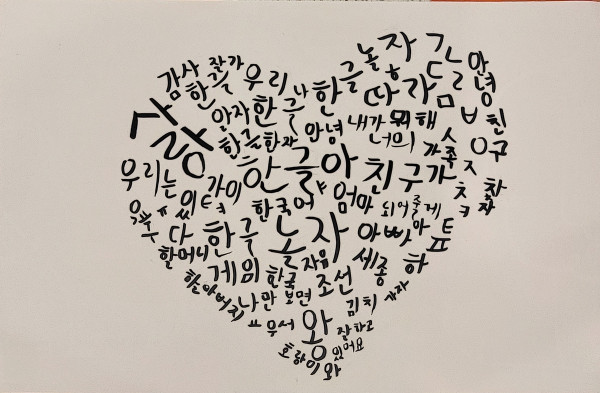 놀자
감사 잘가 우리 한글 안녕
한글 나 한 따람
사랑 안자 한글 내가 뭐해 친구
한글한자 안녕 너의 가족
우리는 한글아 친구가
같이 한국어 엄마 되어줄게
다 한글 놀자 아빠
할머니 게임 한국 자유 세종 하
할아버지 나만 보면 조선 김치 가자
우서 왕 잘하고
호랑이 있어요
와